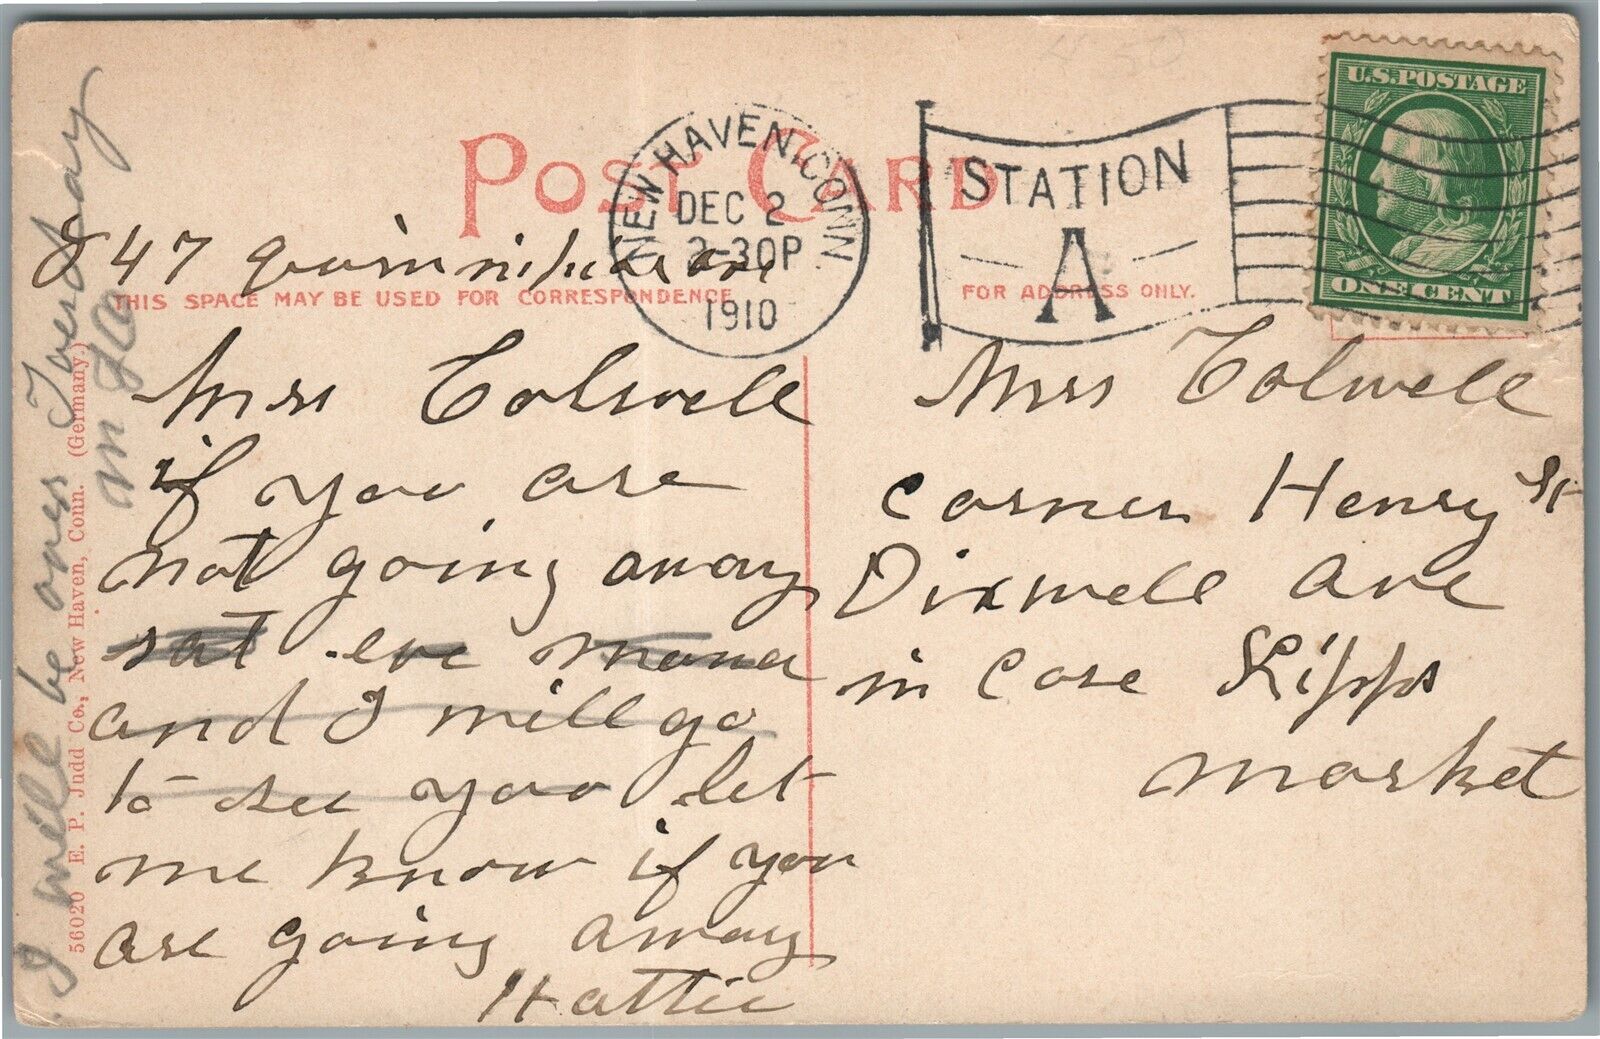 U.S. POSTAGE
ONE CENT
NEW HAVEN, CONN.
DEC 2
2-30P
1910
STATION
A
POST CARD
47
THIS SPACE MAY BE USED FOR CORRESPONDENCE
FOR ADDRESS ONLY.
Mrs Colwell
if you are
not going away
sat eve
and I will go
to see you let
me know if you
are going away
Hattie
Mrs Colwell
corner Henry St
Dixwell Ave
in Care Lipps
market
I will be over Tuesday
56020 E. P. Judd Co., New Haven, Conn. (Germany.)